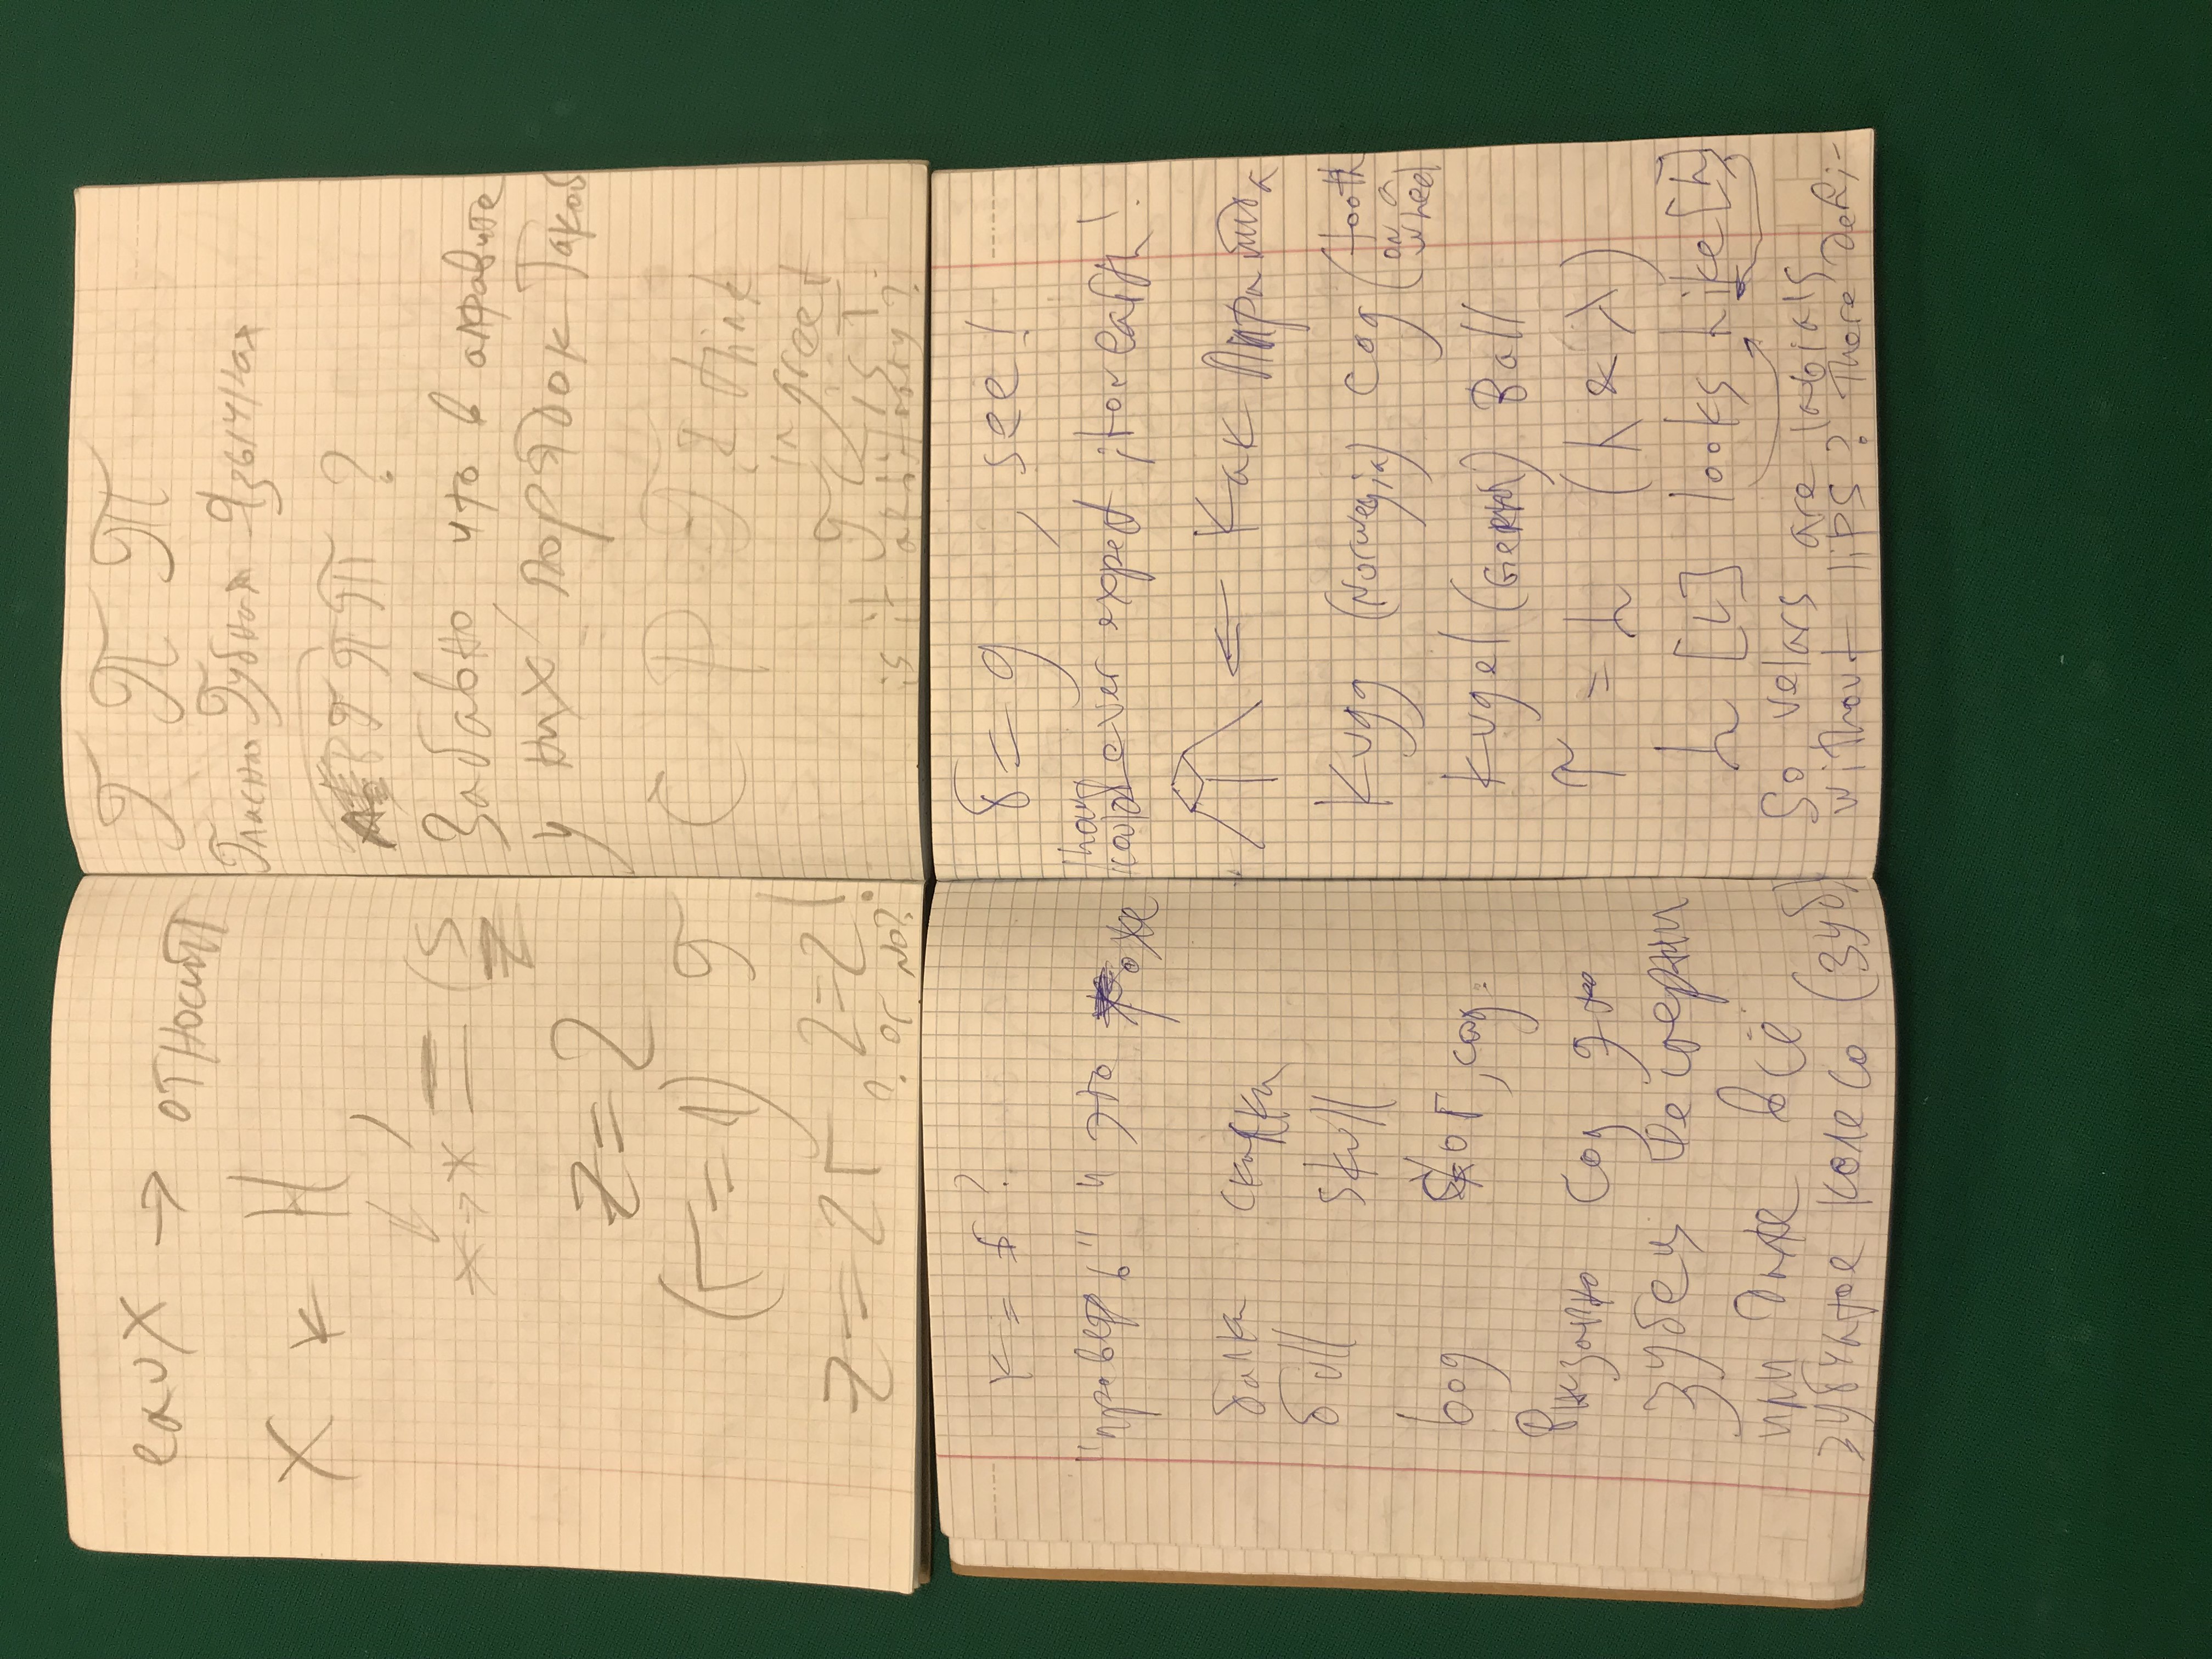 eaux → относит
X к H,
ж → ж = (S
z
z = 2
(г = 1) T
z = 2г 2=2!
? or no?
Г П Т
Гласная Губная Язычная
В Г П Т ?
Забавно что в алфавите
у них порядок такой
С Р Т I think
in greek
is T
is it arbitrary?
к = б ?
"проверь" и это тоже
балка скалка
bull skull
bog ског, cog.
Внезапно cog это
зубец шестерни
или даже всё
зубчатое колесо (зуб)
б = g , see!
ever expect
← как пирамида
Kugg (Norwegia) cog (tooth
on a
wheel
Kugel (German) Ball
Ԧ = h (h & λ)
h [L] looks like [h]
So velars are labials
without lips? There defi-